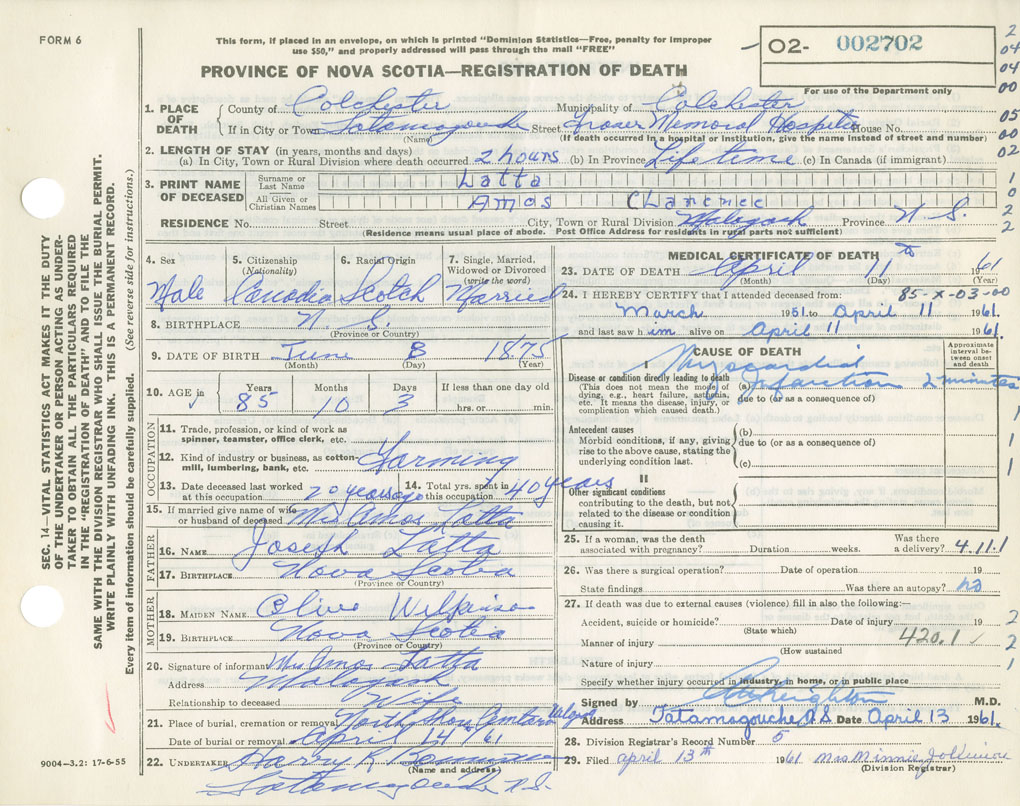 FORM 6
This form, if placed in an envelope, on which is printed "Dominion Statistics—Free, penalty for improper
use $50," and properly addressed will pass through the mail "FREE"
PROVINCE OF NOVA SCOTIA—REGISTRATION OF DEATH
02- 002702
For use of the Department only
2
04
04
00
05
00
02
1
0
2
2
SEC. 14—VITAL STATISTICS ACT MAKES IT THE DUTY
OF THE UNDERTAKER OR PERSON ACTING AS UNDER-
TAKER TO OBTAIN ALL THE PARTICULARS REQUIRED
IN THE "REGISTRATION OF DEATH" AND TO FILE THE
SAME WITH THE DIVISION REGISTRAR WHO SHALL ISSUE THE BURIAL PERMIT.
WRITE PLAINLY WITH UNFADING INK. THIS IS A PERMANENT RECORD.
Every item of information should be carefully supplied. (See reverse side for instructions.)
1. PLACE OF DEATH County of Colchester Municipality of Colchester
If in City or Town Tatamagouche Street Fraser Memorial Hospital House No.
(Name) (If death occurred in a hospital or institution, give the name instead of street and number)
2. LENGTH OF STAY (in years, months and days)
(a) In City, Town or Rural Division where death occurred 2 hours (b) In Province Life time (c) In Canada (if immigrant)
3. PRINT NAME OF DECEASED Surname or Last Name Latta
All Given or Christian Names Amos Clarence
RESIDENCE No. Street City, Town or Rural Division Malagash Province N. S.
(Residence means usual place of abode. Post Office Address for residents in rural parts not sufficient)
4. Sex 5. Citizenship (Nationality) 6. Racial Origin 7. Single, Married, Widowed or Divorced (write the word)
Male Canadia Scotch Married
8. BIRTHPLACE N. S.
(Province or Country)
9. DATE OF BIRTH June 8 1875
(Month) (Day) (Year)
10. AGE in Years Months Days If less than one day old
85 10 3 hrs. or min.
OCCUPATION
11. Trade, profession, or kind of work as
spinner, teamster, office clerk, etc.
12. Kind of industry or business, as cotton-
mill, lumbering, bank, etc. Farming
13. Date deceased last worked at this occupation 20 years ago 14. Total yrs. spent in this occupation 40 years
15. If married give name of wife
or husband of deceased Mrs Amos Latta
FATHER
16. NAME Joseph Latta
17. BIRTHPLACE Nova Scotia
(Province or Country)
MOTHER
18. MAIDEN NAME Olive Wilkinso
19. BIRTHPLACE Nova Scotia
(Province or Country)
20. Signature of informant Mrs Amos Latta
Address Malagash
Relationship to deceased Wife
21. Place of burial, cremation or removal North Shore
Date of burial or removal April 14/61
22. UNDERTAKER Harry R
(Name and address)
Tatamagouche N.S.
9004—3.2: 17-6-55
MEDICAL CERTIFICATE OF DEATH
23. DATE OF DEATH April 11th 1961
(Month) (Day) (Year)
24. I HEREBY CERTIFY that I attended deceased from: 85-X-03-00
March 1951 to April 11 1961
and last saw him alive on April 11 1961
CAUSE OF DEATH
Approximate interval between onset and death
Disease or condition directly leading to death
(This does not mean the mode of dying, e.g., heart failure, asthenia, etc. It means the disease, injury, or complication which caused death.)
(a) Myocardial Infarction 2 minutes
due to (or as a consequence of)
Antecedent causes
Morbid conditions, if any, giving rise to the above cause, stating the underlying condition last.
(b)
due to (or as a consequence of)
(c)
II
Other significant conditions
contributing to the death, but not related to the disease or condition causing it.
1
1
1
25. If a woman, was the death
associated with pregnancy? Duration weeks. Was there a delivery? 4.11.1
26. Was there a surgical operation? Date of operation 19
State findings Was there an autopsy? no
27. If death was due to external causes (violence) fill in also the following:—
Accident, suicide or homicide? Date of injury 19
(State which)
Manner of injury 420.1 ✓
(How sustained)
Nature of injury
2
2
1
Specify whether injury occurred in industry, in home, or in public place
Signed by Creighton M.D.
Address Tatamagouche, N.S. Date April 13 1961
28. Division Registrar's Record Number 5
29. Filed April 13th 1961 Mrs Minnie
(Division Registrar)